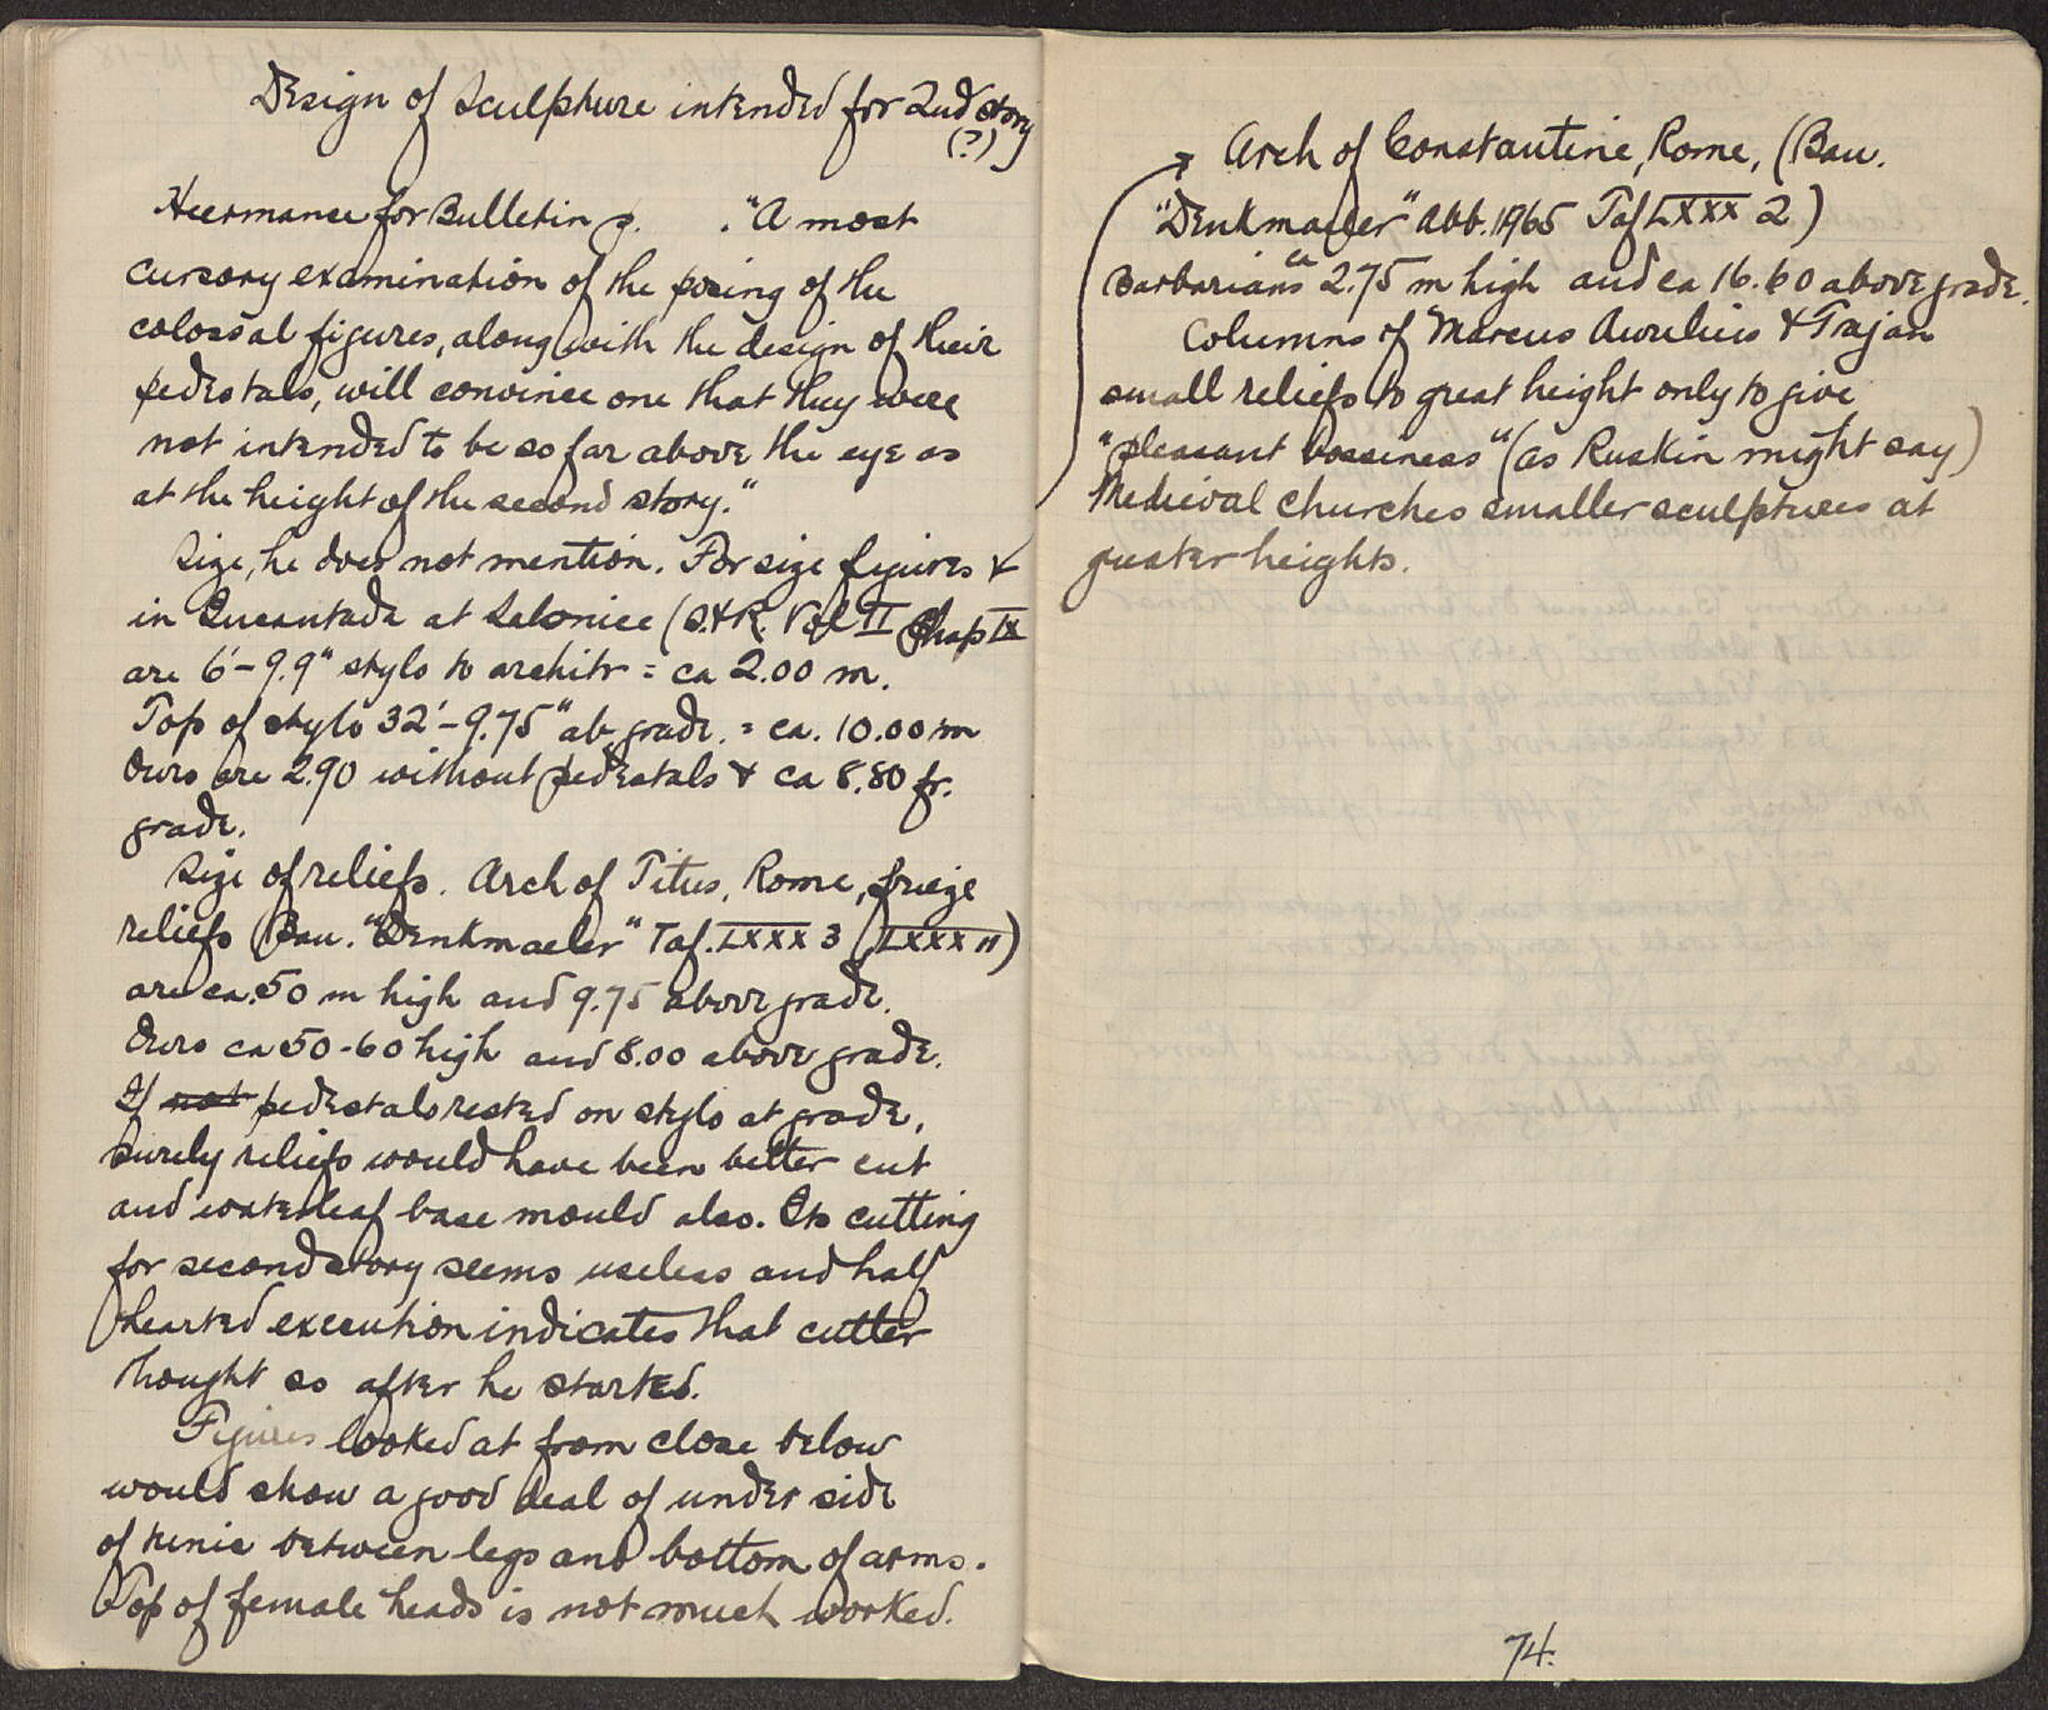 Design of Sculpture intended for 2nd story
(?)
Heermance for Bulletin p.    . "A most
cursory examination of the posing of the
colossal figures, along with the design of their
pedestals, will convince one that they were
not intended to be so far above the eye as
at the height of the second story."
Size, he does not mention. For size figures &
in Incantada at Salonice (S.&R. Vol II Chap IX
are 6'-9.9" stylo to architr = ca 2.00 m.
Top of stylo 32'-9.75" ab. grade. = ca. 10.00 m
Ours are 2.90 without pedestals & ca 8.80 fr.
grade.
Size of reliefs. Arch of Titus, Rome, frieze
reliefs (Bau. "Denkmaeler" Taf. LXXX 3 (LXXX 11)
are ca .50 m high and 9.75 above grade.
Ours ca 50-60 high and 8.00 above grade.
If not pedestals rested on stylo at grade,
surely reliefs would have been better cut
and waterleaf base mould also. Its cutting
for second story seems useless and half
hearted execution indicates that cutter
thought so after he started.
Figures looked at from close below
would show a good deal of under side
of tunic between legs and bottom of arms.
Top of female heads is not much worked.
Arch of Constantine, Rome, (Bau.
"Denkmaeler" Abb. 1965 Taf LXXX 2)
Barbarians ca 2.75 m high and ca 16.60 above grade.
Columns of Marcus Aurelius & Trajan
small reliefs to great height only to give
"pleasant bossiness" (as Ruskin might say)
Medieval churches smaller sculptures at
greater heights.
74.